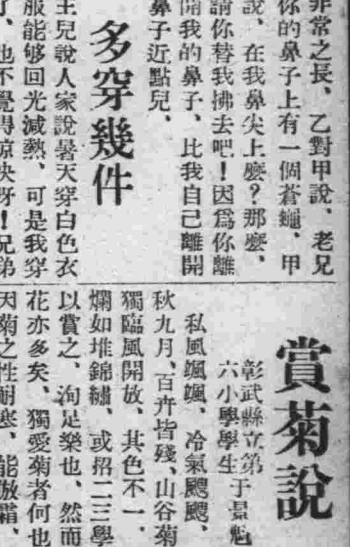 非常之長、乙對甲說、老兄
你的鼻子上有一個蒼蠅、甲
說、在我鼻尖上麼？那麼、
請你替我拂去吧！因爲你離
開我的鼻子、比我自己離開
鼻子近點兒、
多穿幾件
王兒說人家說暑天穿白色衣
服能够回光減熱、可是我穿
了、也不覺得涼快呀！兄弟
賞菊說
彰武縣立第
六小學學生
于景魁
私風颯颯、冷氣颼颼、
秋九月、百卉皆殘、山谷菊
獨臨風開放、其色不一、
爛如堆錦繡、或招二三學
以賞之、洵足樂也、然而
花亦多矣、獨愛菊者何也
天菊之性耐寒、能傲霜、